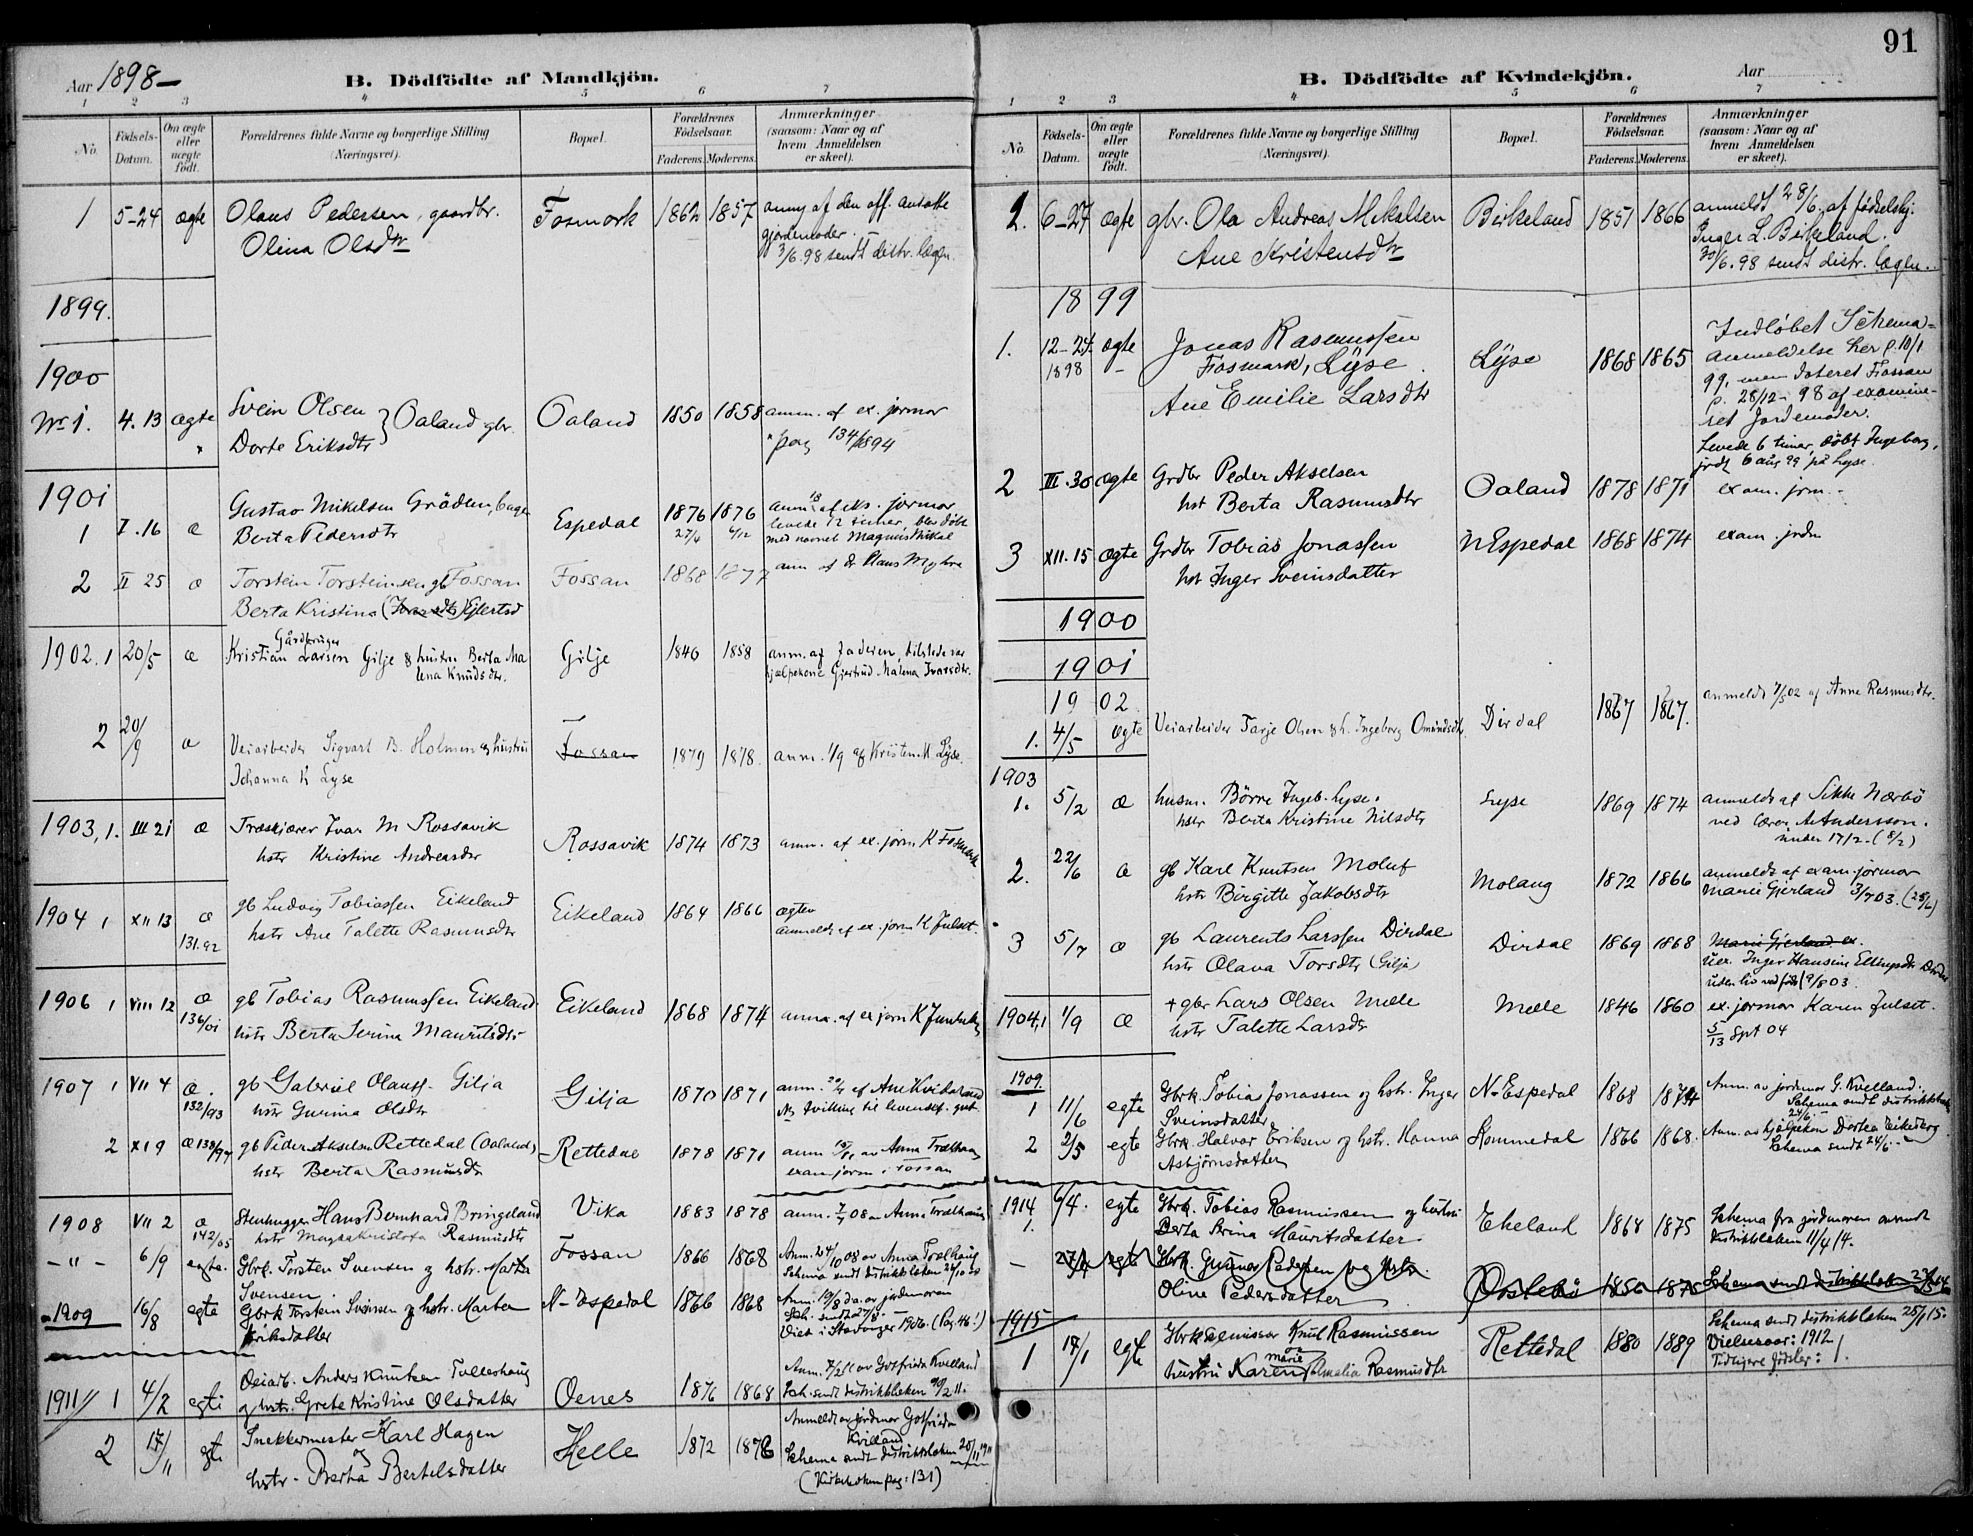 91
Aar 1898 —
B. Dödfödte af Mandkjön.
1 2 3 4 5 6 7
No.
Födsels-Datum.
Om ægte eller uægte födt.
Forældrenes fulde Navne og borgerlige Stilling (Næringsvei).
Bopæl.
Forældrenes Födselsaar.
Faderens. Moderens.
Anmærkninger (saasom: Naar og af hvem Anmeldelsen er skeet).
1 5-24 ægte Olaus Pedersen, gaardbr. Fosmork 1862 1857 anm af den off. ansatte
Olina Olsdtr gjordemoder.
3/6.98 sendt distr. lægen.
1899.
1900
No 1. 4.13 ægte Svein Olsen } Oaland gbr. Oaland 1850 1858 anm. af ex. jormor
Dorte Eriksdtr pag 134/1894
1901
1 I.16 æ Gustav Mikelsen Gråden, Espedal 1876 1876 anm. af eks. jormor
Berta Pedersdtr 27/4 4/12 levede 12 timer, blev döbt
med navnet Magnus Mikal
2 II 25 æ Torstein Torsteinsen gb Fossan Fossan 1868 1877 anm af dr Hans Myhre
Berta Kristina (Ivarsdtr) Ejlertsd
1902. 1 20/5 æ Gårdbruger
Kristian Larsen Gilje & hustru Berta Ma Gilje 1846 1858 anm. af Faderen, tilstede var
lena Knudsdtr. hjælpekone Gjertrud Malena Ivarsdtr.
2 20/9 æ Veiarbeider Sigvart B. Holmen og hustru Fossan 1879 1878. anm. 1/9 af Kristen M Lyse.
Johanna K Lyse
1903, 1. III 21 æ Træskjærer Ivar M Rossavik Rossavik 1874 1873 anm. af ex. jorm K Fosmark
hstr Kristine Andreasdtr
1904 1 XII 13 æ gb Ludvig Tobiassen Eikeland Eikeland 1864 1866 ægtev
131.92 hstr Ane Talette Rasmusdtr anmeldt af ex. jorm K Julset.
1906 1 VIII 12 æ gb Tobias Rasmussen Eikeland Eikeland 1868 1874 anm. af ex jorm K
136/01 hstr Berta Serina Mauritsdtr
1907 1 VII 4 æ. gb Gabriel Olauss. Gilja Gilja 1870 1871 anm. af Ane Kvidaland
132/93 hstr Gurina Olsdtr
2 XI 9 æ gb Peder Akselsen Rettedal (Oaland) Rettedal 1878 1871 anm av Anna Trælhaug
hstr Berta Rasmusdtr exam jorm i Fossan
1908 VII 2 æ Stenhugger Hans Bernhard Bringeland Vika 1883 1878 anm. 7/7 08 Anna Trælhaug
142/05 hstr Magda Kristofa Rasmusdtr
— " — 6/9 egte. Gbrk. Torsten Svensen og hstr. Marta Fossan 1866 1868 Anm. 24/10 08 av Anna Trælhaug
Svensen. Schema sendt distriktslæken
1909 16/8 egte Gbrk Torsten Svensen og hstr. Marta N-Espedal 1866 1868 Anm. 19/8 da. av jordmoren
Eriksdatter Sch. sendt 27/8. —
Viet i Stavanger 1906. (Pag. 48!)
1911 1 4/2 egte Veiarb. Anders Knutsen Tølleshaug Oenes 1876 1868 Anm. 7/2 11 av Gotfrida Kvelland
og hstr. Grete Kristine Olsdatter Sch. sendt distriktslæken
2 17/11 egte Snekkermester Karl Hagen Helle 1872 1876 Anmeldt av jordmor Gotfrida
og Kvelland
hstr. Berta Bertelsdatter Schema sendt distriktslæken 20/11 1911
(Kirkeboken pag: 131)
B. Dödfödte af Kvindekjön.
Aar
1 2 3 4 5 6 7
No.
Födsels-Datum.
Om ægte eller uægte födt.
Forældrenes fulde Navne og borgerlige Stilling (Næringsvei).
Bopæl.
Forældrenes Födselsaar.
Faderens. Moderens.
Anmærkninger (saasom: Naar og af hvem Anmeldelsen er skeet).
1. 6-27 ægte gbr. Ola Andreas Mikalsen Birkeland 1851 1866 anmeldt 28/6 af fødselshj.
Ane Kristensdtr Inger L. Birkeland.
30/6.98 sendt distr. lægen.
1899
1. 12-27 ægte Jonas Rasmussen Lÿse 1868 1865 Indløbet Schema-
1898 — Fosmark, Lÿse anmeldelse her p. 10/1
Ane Emilie Larsdtr 99, men dateret Fossan
p. 28/12-98 af examine-
ret Jordemoder.
Levede 6 timer, döbt Ingeborg,
jrdf 6 aug 99 på Lyse.
2 III.30 ægte Grdbr Peder Akselsen Oaland 1878 1871 exam. jrm —
hst Berta Rasmusdtr
3 XII.15 ægte Grdbr Tobias Jonassen N Espedal 1868 1874 exam. jrdm
hst Inger Sveinsdatter
1900
1901
1902
1. 4/5 ægte Veiarbeider Tarje Olsen & h. Ingeborg Omundsdtr. Dirdal 1867 1867. anmeldt 7/5 02 af Anne Rasmusdtr.
1903
1. 5/2 æ husm. Börre Ingeb. Lyse. Lyse 1869 1874 anmeldt af Sikke Nærbö
hstr Berta Kristine Nilsdtr ved lærer A. Andersson.
under 17/2. (8/2)
2. 22/6 æ gb Karl Knutsen Moluf Molaug 1872 1866 anmeldt af exam jormor
hstr Birgitte Jakobsdtr Marie Gjerland 3/7 03. (25/6)
3 5/7 æ gb Laurents Larssen Dirdal Dirdal 1869 1868 Marie Gjerland ex.
hstr Olava Torsdtr (Gilja) uex. Inger Hansine Ellingsdtr Dirdal
uden liv ved föds (9/8 03.
1904, 1 1/9 æ + gbr Lars Olsen Mæle Mæle 1846 1860 ex. jormor Karen Julset.
hstr Talette Larsdtr 5/13 Spt 04
1909.
1 11/6 egte Gbrk. Tobias Jonassen og hstr. Inger N-Espedal 1868 1874 Anm. av jordmor G. Kvelland.
Sveinsdatter Schema sendt distriktslæken
24/6. —
2 2/5 egte Gbrk. Halvor Eriksen og hstr. Hanna Kommedal 1866 1868. Anm. av hjelpekon Dortea Eikeskog
Asbjørnsdatter Schema sendt 24/6 —
1914 6/4. egte Gbrk. Tobias Rasmussen og hustru Ekeland 1868 1875 Schema fra jordmoren ovsendt
1. Berta Serina Mauritsdatter. distriktslæken 11/4 14.
— 27/4 egte Gbrk. Gunnar Pedersen og hstr. Östebö 1850 1875 Schema sendt distriktslæken
Oline Pedersdatter
1915
1 17/1 egte Gbrk Knut Rasmussen Rettedal 1880 1889 Schema sendt distriktslæken 25/1 15.
Marie Vielsesaar: 1912
hustru Karen Amalia Rasmusdtr Tidligere fødsler: 1.